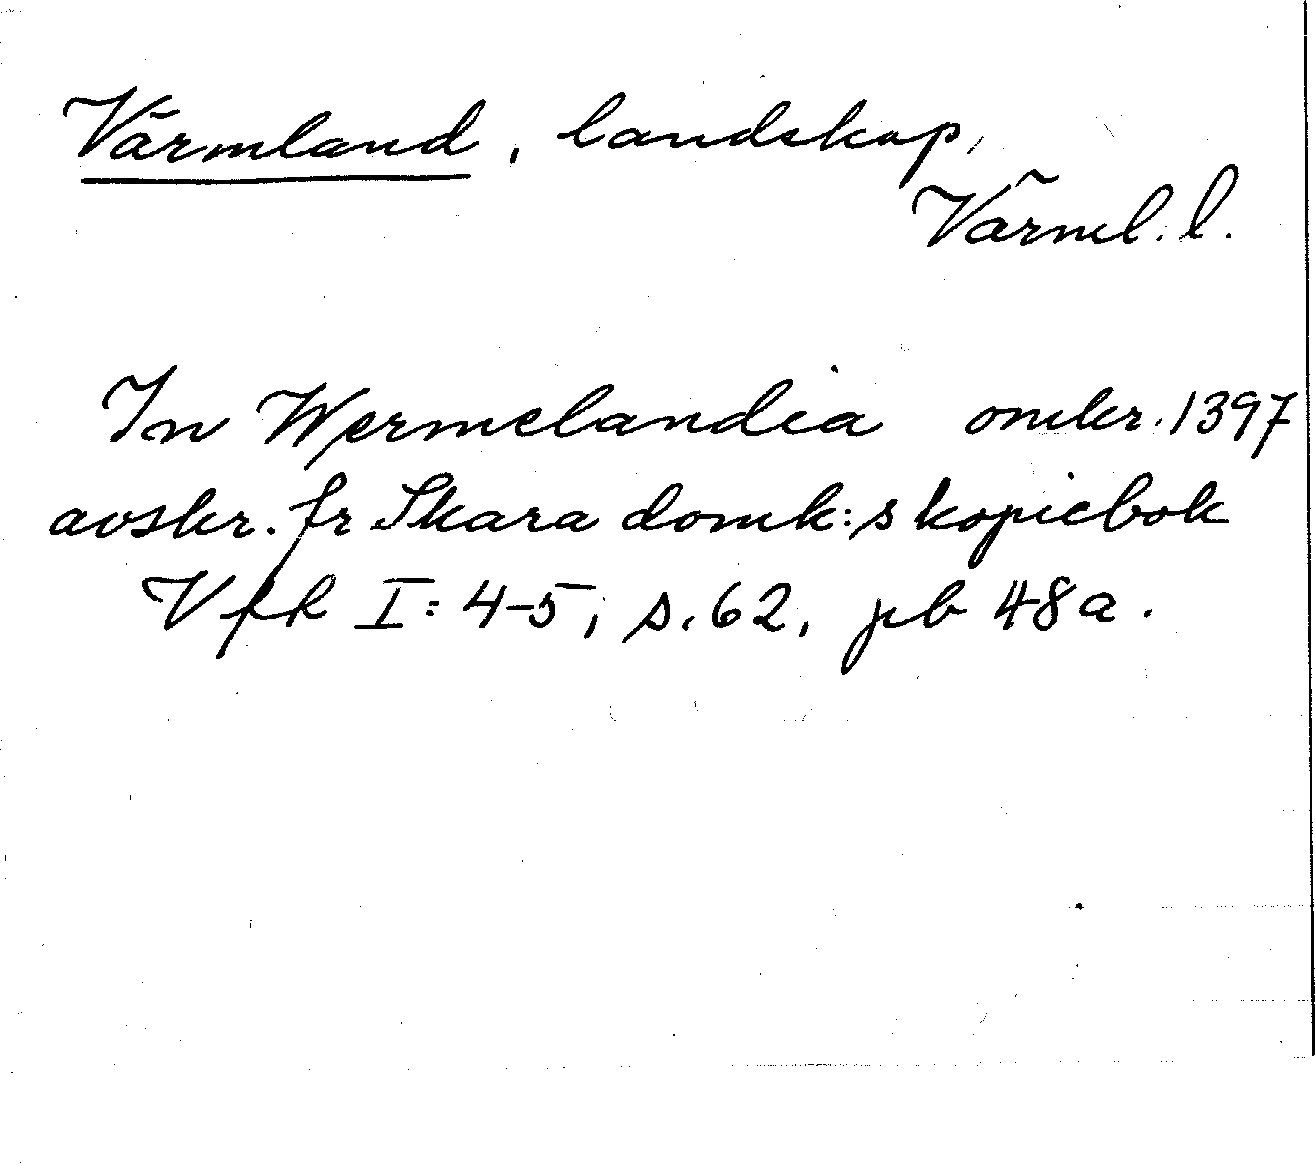 Värmland, landskap,
Värml. l.
In Wermelandia omkr. 1397
avskr. fr Skara domk:s kopiebok
Vfh I: 4-5, s. 62, pb 48a.